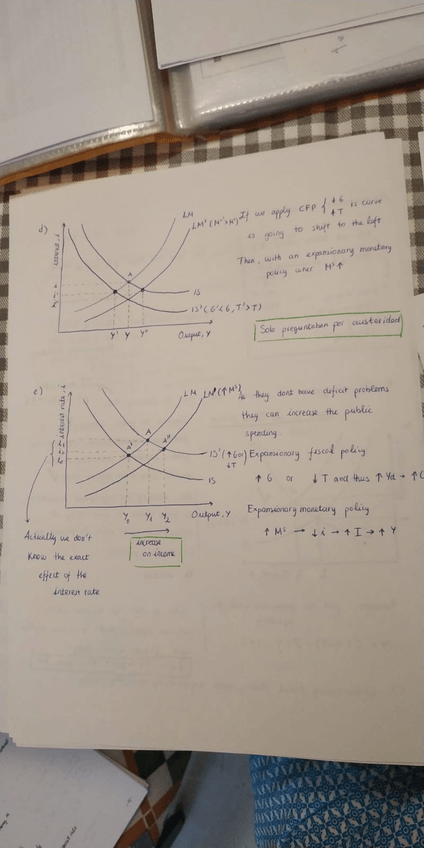 d)
LM
LM' (M'>M)
If we apply CFP { ↓G ↑T is curve
is going to shift to the left
Then, with an expansionary monetary
policy
IS
IS' (G'<G, T'>T)
Y' Y Y''
Output, Y
Solo preguntaban por austeridad
e)
interest rate, i
LM
As they dont have deficit problems
they can increase the public
spending.
A' A A''
Expansionary fiscal policy
IS
↑G or ↓T and thus ↑Yd → ↑C
Output, Y
Expansionary monetary policy
↑ Mˢ → ↓i → ↑I → ↑Y
increase
on income
Actually we don't
know the exact
effect of the
interest rate